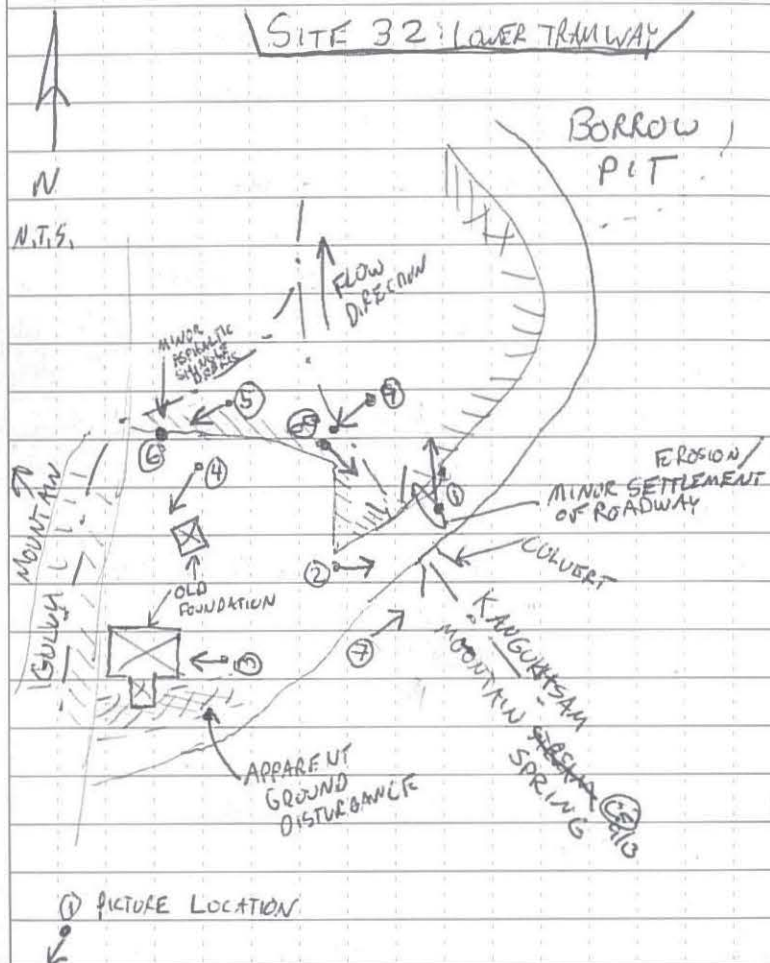 SITE 32: LOWER TRAMWAY
BORROW
PIT
N
N.T.S.
FLOW
DIRECTION
MINOR
ASPHALTIC
SHINGLE
DEBRIS
5
9
6
8
4
1
EROSION/
MINOR SETTLEMENT
OF ROADWAY
MOUNTAIN
GULLY
2
CULVERT
OLD
FOUNDATION
3
7
KANGUKHSAM
MOUNTAIN STREAM
SPRING
APPARENT
GROUND
DISTURBANCE
1 PICTURE LOCATION